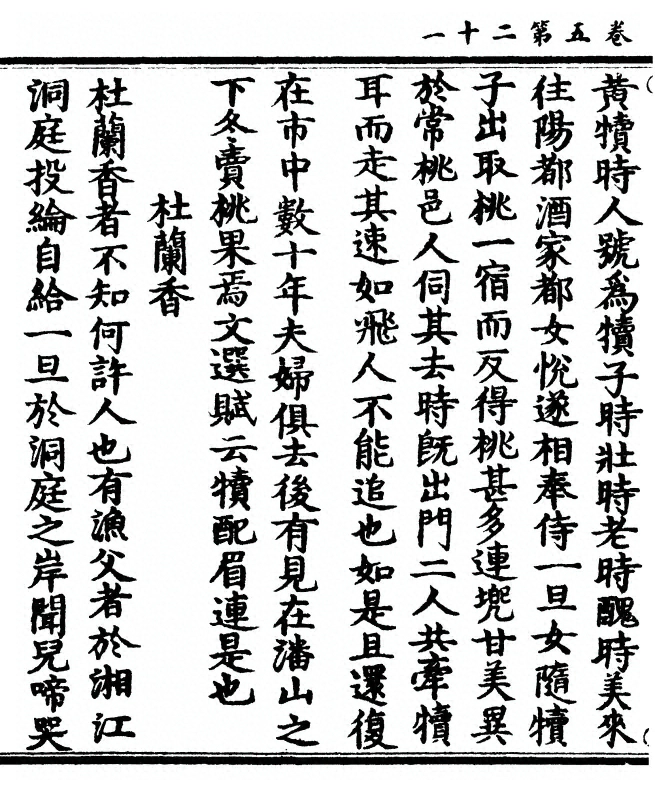 卷五第二十一
黃犢時人號爲犢子時壯時老時醜時美來
往陽都酒家都女悅遂相奉侍一旦女隨犢
子出取桃一宿而反得桃甚多連兠甘美異
於常桃邑人伺其去時旣出門二人共牽犢
耳而走其速如飛人不能追也如是且還復
在市中數十年夫婦俱去後有見在潘山之
下冬賣桃果焉文選賦云犢配眉連是也
杜蘭香
杜蘭香者不知何許人也有漁父者於湘江
洞庭投綸自給一旦於洞庭之岸聞兒啼哭